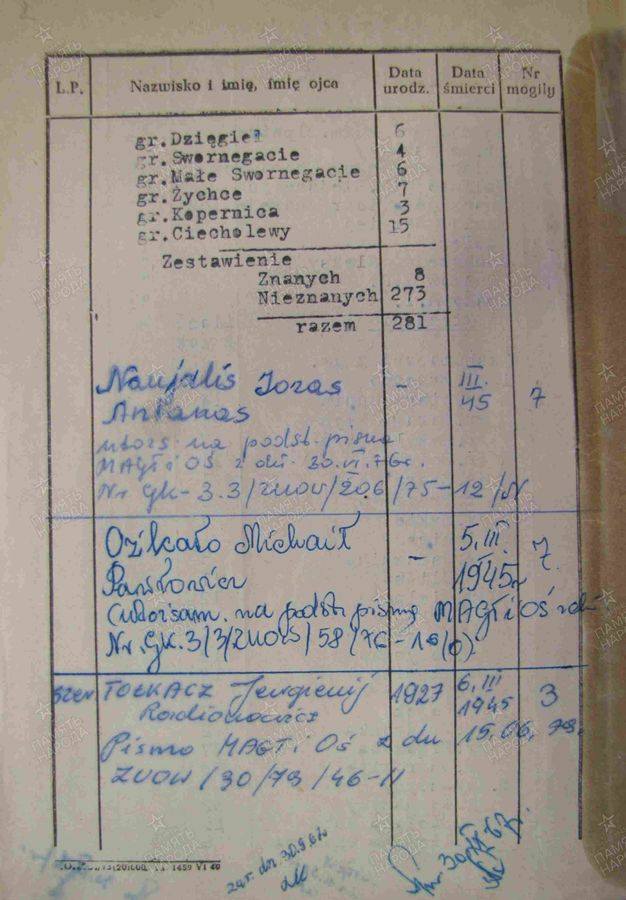 L.P. Nazwisko i imię, imię ojca Data urodz. Data śmierci Nr mogiły
gr.Dzięgiel 6
gr.Swornegacie 4
gr.Małe Swornegacie 6
gr.Żychce 7
gr.Kopernica 3
gr.Ciecholewy 15
Zestawienie
Znanych 8
Nieznanych 273
razem 281
Naujalis Jozas - III. 45 7
Antanas
na podst. pisma
MAGTiOŚ z dn. 30.VI.76r.
Nr Gk-3.3/ZUOW/206/75-12/
Ozikało Michaił - 5.III. 1945r 7.
Pawłowicz
na podst. pisma MAGTiOŚ
Nr. Gk.3/3/ZUOW/58/76-
szer TOŁKACZ Jewgienij 1927 6.III 1945 3
Rodionowicz
Pismo MAGTiOŚ z dn 15.06.79r.
ZUOW/30/79/46-11
1459 VI 49
dn. 30.9.67
ПАМЯТЬ НАРОДА